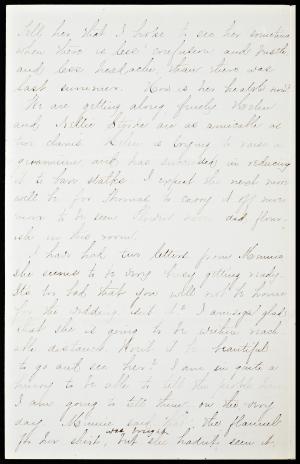 Tell her, that I hope to see her sometime
when there is less confusion and bustle
and less headache, than there was
last summer. How is her health now?
We are getting along finely. Helen
and Nellie are as amicable as
two clams. Helen is trying to raise a
geranium and has succeeded in reducing
it to bare stalks. I expect the next move
will be for Thomas to carry it off never
more to be seen. did flour-
ish in this room.
I have had two letters from Minnie
she seems to be very busy getting ready.
Its too bad that you will not be home
for the wedding isn't it? I am so glad
that she is going to be within reach
able distance. Won't it be beautiful
to go and see her? I am in quite a
hurry to be able to tell the people here
I am going to tell them on the very
day. Minnie said that the flannel
for her skirt, was bright but she hadn't seen it,